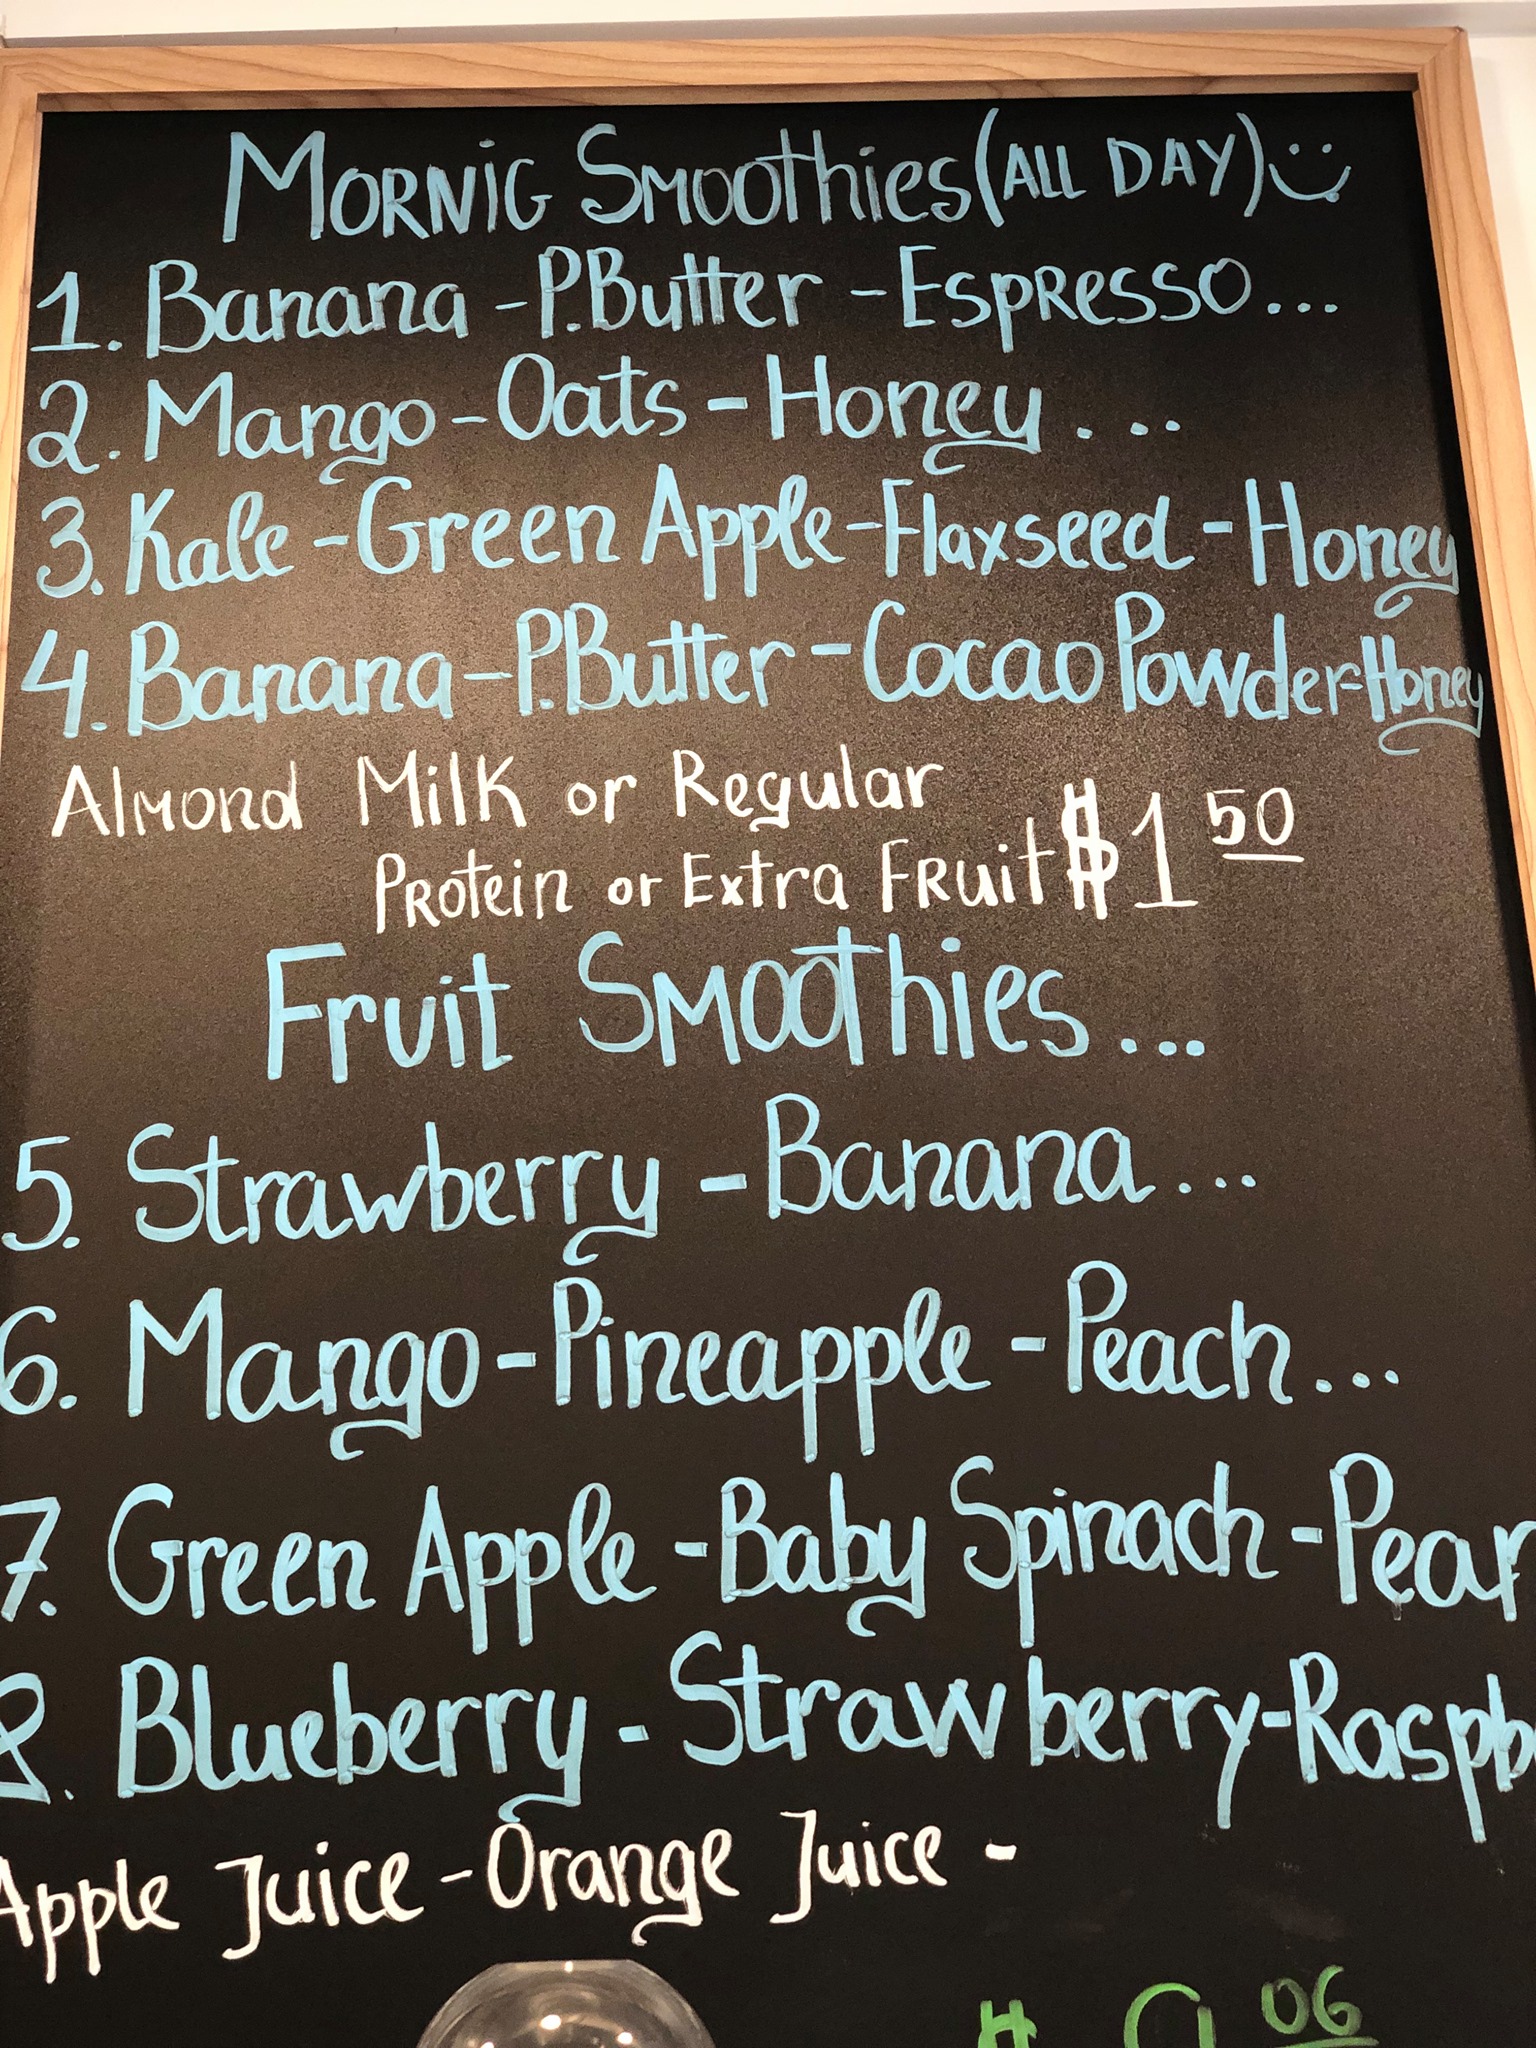 MORNIG SMOOTHIES (ALL DAY)
1. Banana - P.Butter - Espresso...
2. Mango - Oats - Honey....
3. Kale - Green Apple - Flaxseed - Honey
4. Banana - P.Butter - Cocao Powder - Honey
Almond Milk or Regular
Protein or Extra Fruit $1 50
Fruit Smoothies...
5. Strawberry - Banana...
6. Mango - Pineapple - Peach...
7. Green Apple - Baby Spinach - Pear
8. Blueberry - Strawberry - Raspb
Apple Juice - Orange Juice -
06